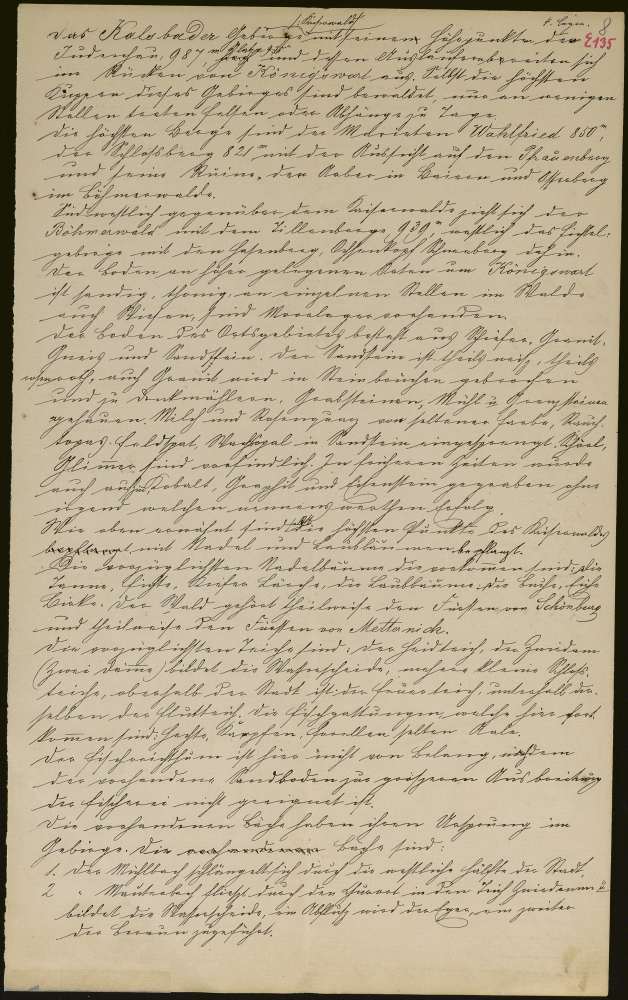 (Kaiserwald)
4. Lizn. 8
E135
Das Kalsbader Gebirge mit seinem Höhepunkte der
Judenhau, 987 m und dessen Ausläufern breiten sich
im Rücken von Königswart aus. Selbst die höchsten
Kuppen dieses Gebirges sind bewaldet, nur an wenigen
Stellen treten Felsen oder Abhänge zu Tage.
Die höchsten Berge sind der Wahlfried 850 m,
der Schlossberg 821 m mit der Aussicht auf den Pfrauenberg
und seine Ruine, den Arber in Baiern und Osserberg
im Böhmerwalde.
Südwestlich gegenüber dem Kaiserwalde zieht sich der
Böhmerwald mit dem Tillenberge 939 m, westlich das Fichtel-
gebirge mit den Hasenberg, Ochsenkopf Schneeberg dahin.
Der Boden an höher gelegenen Orten um Königswart
ist sandig, thonig, an einzelnen Stellen im Walde
auch Wiesen, sind Moorlager vorhanden.
Der Boden des Ortsgebietes besteht aus Schiefer, Granit,
Gneis und Sandstein. Der Sandstein ist theils weiß, theils
roth, auch Granit wird in Steinbrüchen gebrochen
und zu Denkmählern, Grabsteinen, Mühl u Grenzsteinen
gehauen. Milch und Rosenquarz von seltener Farbe, Rauch-
topas, Feldspat, Wachsopal in Sandstein eingesprengt, Schörl,
Glimmer sind vorfindlich. In früheren Zeiten wurde
auch auf Kobalt, Graphit und Eisenstein gegraben ohne
irgend welchen nennenswerthen Erfolg.
Wie oben erwähnt sind selbst die höchsten Punkte des Kaiserwaldes
mit Nadel und Laubbäumen bepflanzt.
Die vorzüglichsten Nadelbäume die vorkommen sind: die
Tanne, Fichte, Kiefer Lärche, die Laubbäume: die Buche, Eiche
Birke. Der Wald gehört theilweise den Fürsten von Schönburg
und theilweise den Fürsten von Metternich.
Die vorzüglichsten Teiche sind: der Haidteich, die Zwiedam
(Zwei Däme) bildet die Wasserscheide, mehrere kleine Schloß-
teiche, oberhalb der Stadt ist der Feuerteich, unterhalb der-
selben der Flutteich. Die Fischgattungen, welche hier fort-
kommen sind: Hechte, Karpfen, Forellen selten Aale.
Der Fischreichthum ist hier nicht von Belang, indem
der vorhandene Sandboden zur größeren Ausbreitung
der Fischerei nicht geeignet ist.
Die vorhandenen Bäche haben ihren Ursprung im
Gebirge. Die vorhandenen Bäche sind:
1. Der Mühlbach schlängelt sich durch die westliche Hälfte der Stadt,
2 " Mauterbach fließt durch den Kurort in den Teich Zwiedamm u
bildet die Wasserscheide, ein Abfluß wird der Eger, ein zweiter
der Beraun zugeführt.